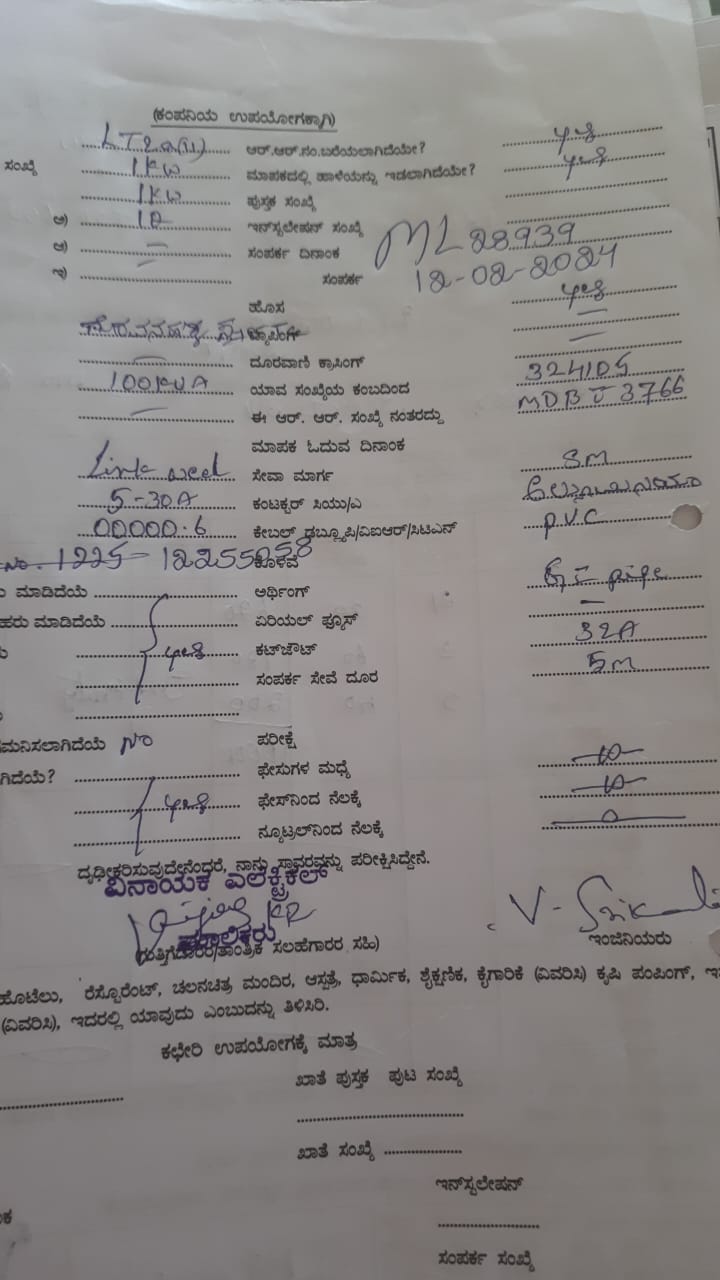 (ಕಂಪನಿಯ ಉಪಯೋಗಕ್ಕಾಗಿ)
LT2a(ii) ಆರ್.ಆರ್.ನಂ.ಬರೆಯಲಾಗಿದೆಯೇ?
ಸಂಖ್ಯೆ 1KW ಮಾಪಕದಲ್ಲಿ ಹಾಳೆಯನ್ನು ಇಡಲಾಗಿದೆಯೇ?
1KW ಪುಸ್ತಕ ಸಂಖ್ಯೆ
ಅ) ಇನ್‌ಸ್ಟಲೇಷನ್ ಸಂಖ್ಯೆ ML28939
ಆ) – ಸಂಪರ್ಕ ದಿನಾಂಕ 12-02-2024
ಇ) – ಸಂಪರ್ಕ
ಹೊಸ
– ದೂರವಾಣಿ ಕ್ರಾಸಿಂಗ್ –
100KVA ಯಾವ ಸಂಖ್ಯೆಯ ಕಂಬದಿಂದ 324105
– ಈ ಆರ್. ಆರ್. ಸಂಖ್ಯೆ ನಂತರದ್ದು 3766
ಮಾಪಕ ಓದುವ ದಿನಾಂಕ
ಸೇವಾ ಮಾರ್ಗ 8M
5-30A ಕಂಟಕ್ಟರ್ ಸಿಯು/ಎ
00000.6 ಕೇಬಲ್ ಡಬ್ಲ್ಯೂಪಿ/ವಿಐಆರ್/ಸಿಟಿಎನ್ P.V.C
No. 1225- 12255058 ಕೊಳವೆ
ಮಾಡಿದೆಯೆ ಅರ್ಥಿಂಗ್ G I pipe
ಹರು ಮಾಡಿದೆಯೆ ಏರಿಯಲ್ ಫ್ಯೂಸ್ –
ಕಟ್‌ಔಟ್ 32A
ಸಂಪರ್ಕ ಸೇವೆ ದೂರ 5M
ಮನಿಸಲಾಗಿದೆಯೆ No ಪರೀಕ್ಷೆ
ಗಿದೆಯೆ? ಫೇಸುಗಳ ಮಧ್ಯೆ
ಫೇಸ್‌ನಿಂದ ನೆಲಕ್ಕೆ
ನ್ಯೂಟ್ರಲ್‌ನಿಂದ ನೆಲಕ್ಕೆ
ದೃಢೀಕರಿಸುವುದೇನೆಂದರೆ, ನಾನು ಸ್ಥಾವರವನ್ನು ಪರೀಕ್ಷಿಸಿದ್ದೇನೆ.
ವಿನಾಯಕ ಎಲೆಕ್ಟ್ರಿಕಲ್
ಮಾಲಿಕರು
(ಗುತ್ತಿಗೆದಾರರ/ತಾಂತ್ರಿಕ ಸಲಹೆಗಾರರ ಸಹಿ) ಇಂಜಿನಿಯರು
ಹೊಟೆಲು, ರೆಸ್ಟೊರೆಂಟ್, ಚಲನಚಿತ್ರ ಮಂದಿರ, ಆಸ್ಪತ್ರೆ, ಧಾರ್ಮಿಕ, ಶೈಕ್ಷಣಿಕ, ಕೈಗಾರಿಕೆ (ವಿವರಿಸಿ) ಕೃಷಿ ಪಂಪಿಂಗ್,
(ವಿವರಿಸಿ), ಇದರಲ್ಲಿ ಯಾವುದು ಎಂಬುದನ್ನು ತಿಳಿಸಿರಿ.
ಕಛೇರಿ ಉಪಯೋಗಕ್ಕೆ ಮಾತ್ರ
ಖಾತೆ ಪುಸ್ತಕ ಪುಟ ಸಂಖ್ಯೆ
ಖಾತೆ ಸಂಖ್ಯೆ
ಇನ್‌ಸ್ಟಲೇಷನ್
ಸಂಪರ್ಕ ಸಂಖ್ಯೆ